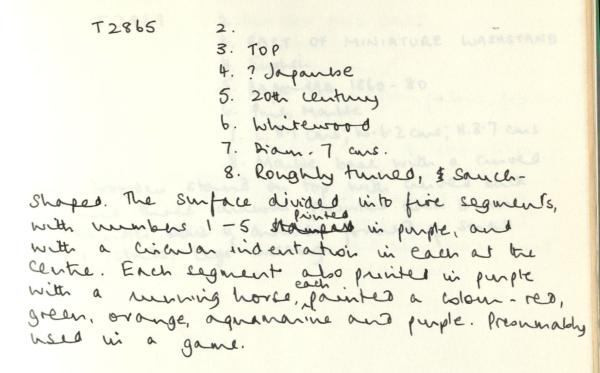 T2865 2.
3. TOP
4. ? Japanese
5. 20th century
6. Whitewood
7. Diam. 7 cms.
8. Roughly turned, & sauch-
shaped. The surface divided into five segments,
with numbers 1-5 stamped printed in purple, and
with a circular indentation in each at the
centre. Each segment also printed in purple
with a running horse, each painted a colour - red,
green, orange, aquamarine and purple. Presumably
used in a game.
PART OF MINIATURE WASHSTAND
1860-80